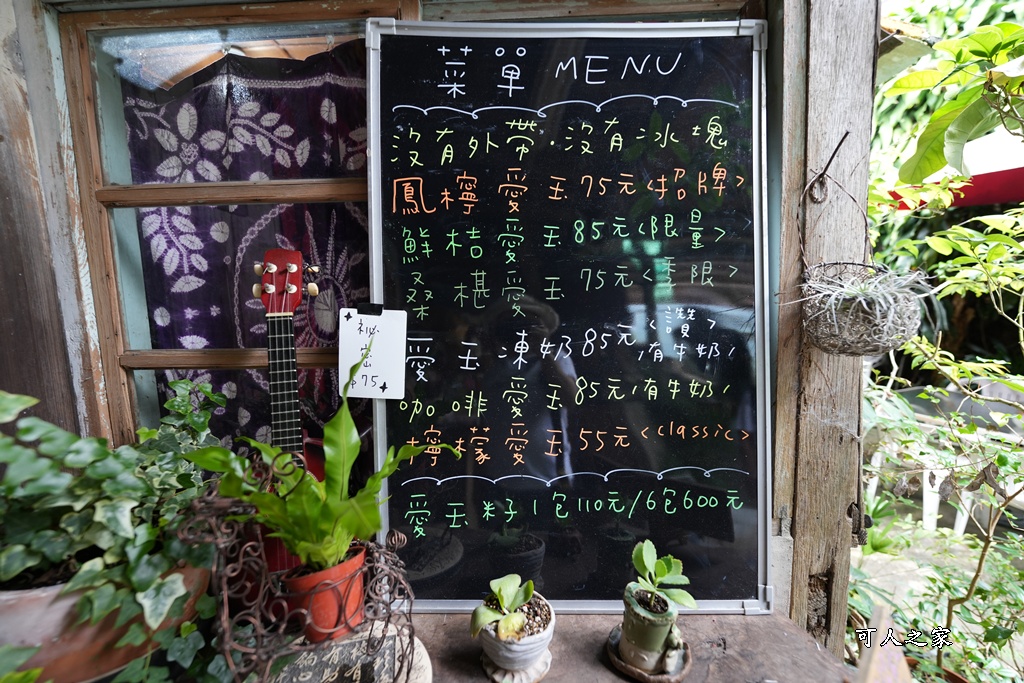 菜單 MENU
沒有外帶·沒有冰塊
鳳檸愛玉75元<招牌>
鮮桔愛玉85元<限量>
桑椹愛玉75元<季限>
愛玉凍奶85元<讚>
,有牛奶,
咖啡愛玉85元,有牛奶,
檸檬愛玉55元<classic>
愛玉籽1包110元/6包600元
祕密
$75
可人之家